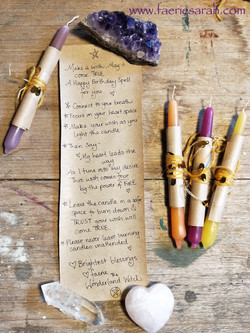 www.faeriesarah.com
Make a wish. May it
come TRUE.
A Happy Birthday Spell
for you
* Connect to your breath
* Focus on your heart space
* Make your wish as you
light the candle.
* Then Say:
"My heart leads the
way
As I tune into my desire
This wish comes true
by the power of FIRE.
* Leave the candle in a safe
space to burn down &
TRUST your wish will
come TRUE.
* Please never leave burning
candles unattended.
♡ Brightest blessings
♡ faerie
the
Wonderland Witch